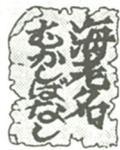 海老名
むかしばなし